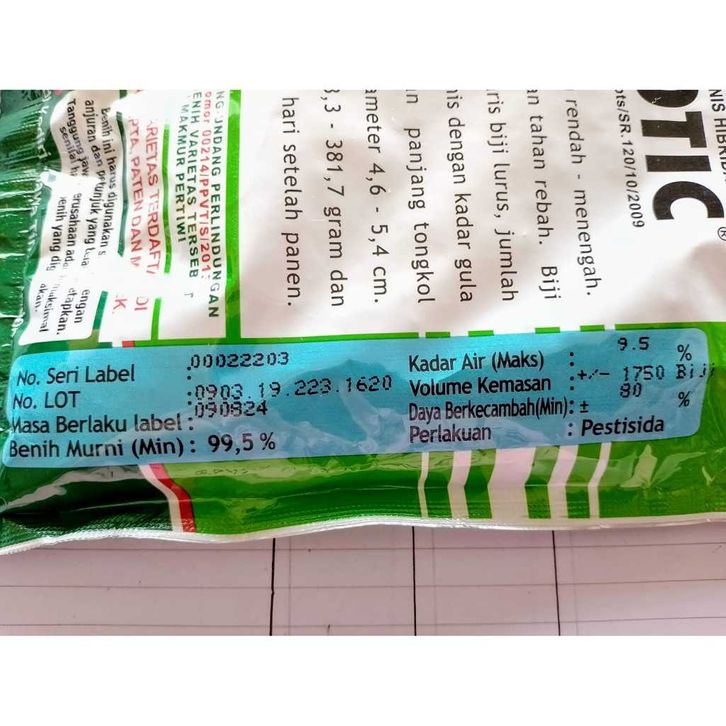 No. Seri Label : 00022203
No. LOT : 0903.19.223.1620
Masa Berlaku label : 090824
Benih Murni (Min) : 99,5 %
Kadar Air (Maks) : 9.5 %
Volume Kemasan : +/- 1750 Biji
Daya Berkecambah(Min): ± 80 %
Perlakuan : Pestisida
OTIC ®
/SR.120/10/2009
rendah - menengah.
tahan rebah. Biji
biji lurus, jumlah
dengan kadar gula
panjang tongkol
ameter 4,6 - 5,4 cm.
3,3 - 381,7 gram dan
hari setelah panen.
NDANG PERLINDUNGAN
00214/PPVT/S/201
ENIH VARIETAS TERSEB T
MAKMUR PERTIWI
ARIETAS TERDAFTA
PATEN DAN M
Benih ini harus digunakan s
anjuran dan petunjuk yang
Tanggung jaw